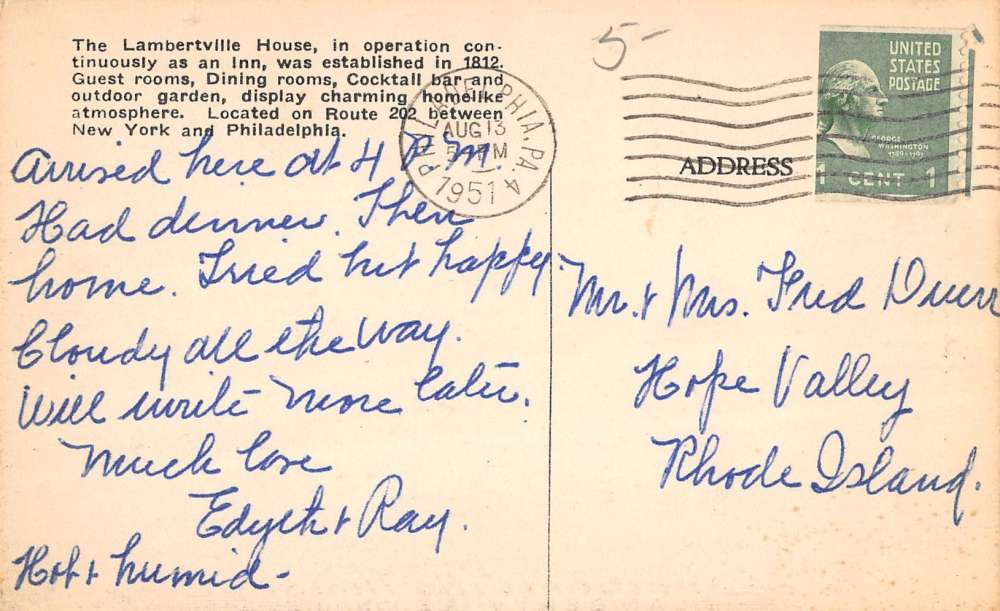 The Lambertville House, in operation con-
tinuously as an Inn, was established in 1812.
Guest rooms, Dining rooms, Cocktail bar and
outdoor garden, display charming homelike
atmosphere. Located on Route 202 between
New York and Philadelphia.
5-
PHILADELPHIA, PA. 4
AUG 13
PM
1951
UNITED
STATES
POSTAGE
GEORGE
WASHINGTON
1789-1797
1 CENT 1
ADDRESS
Arrived here at 4 P.M.
Had dinner. Then
home. Tired but happy.
Cloudy all the way.
Will write more later.
Much love
Edyth & Ray.
Hot & humid-
Mr. & Mrs. Fred
Hope Valley
Rhode Island.